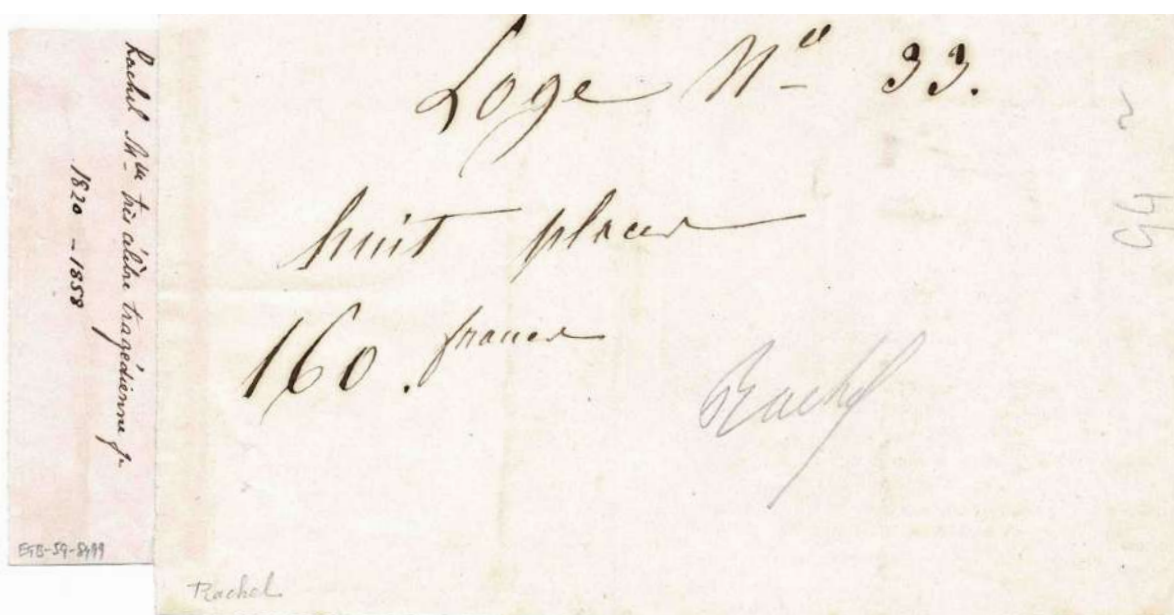 Rachel Mlle très célèbre tragédienne fr.
1820 - 1858
Loge No 33.
huit places
160. francs
Rachel
Rachel